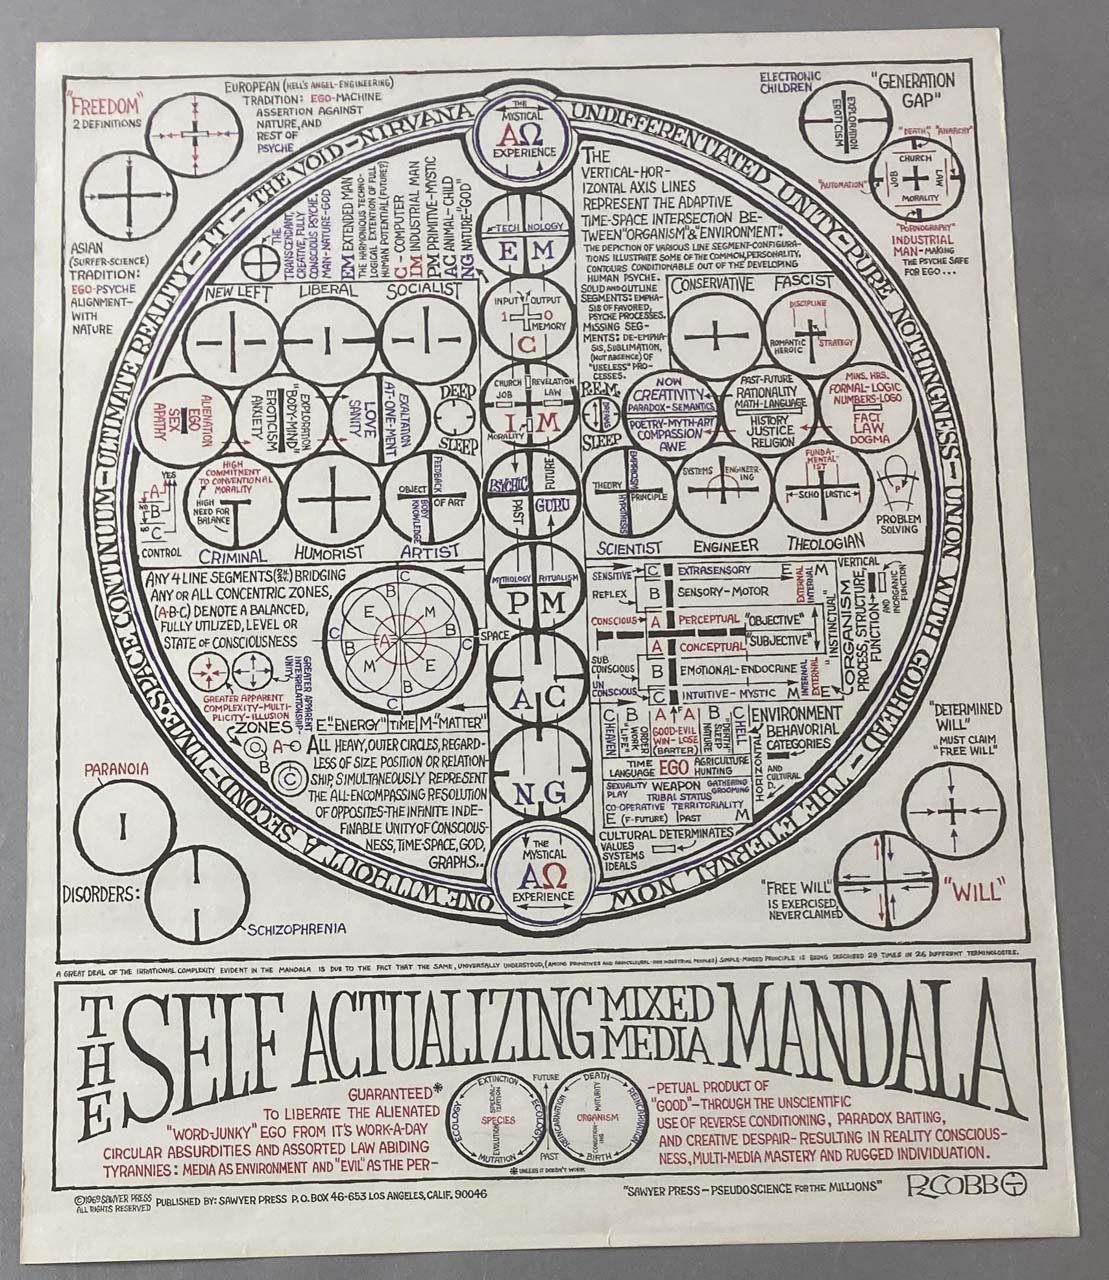 "FREEDOM"
2 DEFINITIONS
EUROPEAN (HELL'S ANGEL-ENGINEERING)
TRADITION: EGO-MACHINE
ASSERTION AGAINST
NATURE, AND
REST OF
PSYCHE
ASIAN
(SURFER-SCIENCE)
TRADITION:
EGO-PSYCHE
ALIGNMENT-
WITH
NATURE
ELECTRONIC
CHILDREN
"GENERATION
GAP"
EXPLORATION
EROTICISM
"DEATH" "ANARCHY"
CHURCH
"AUTOMATION"
JOB
LAW
MORALITY
"PORNOGRAPHY"
INDUSTRIAL
MAN-MAKING
THE PSYCHE SAFE
FOR EGO...
ONE WITHOUT A SECOND-TIME&SPACE CONTINUUM-ULTIMATE REALITY-IT-THE VOID-NIRVANA
UNDIFFERENTIATED UNITY-PURE NOTHINGNESS-UNION WITH GODHEAD-THE ETERNAL NOW
THE
MYSTICAL
ΑΩ
EXPERIENCE
THE
TRANSCENDANT,
CREATIVE, FULLY
CONSCIOUS PSYCHE,
MAN-NATURE-GOD
EM EXTENDED MAN
THE HARMONIOUS TECHNO-
LOGICAL EXTENTION OF FULL
HUMAN POTENTIAL (FUTURE?)
C - COMPUTER
IM INDUSTRIAL MAN
PM PRIMITIVE-MYSTIC
AC ANIMAL-CHILD
NG NATURE-"GOD"
THE
VERTICAL-HOR-
IZONTAL AXIS LINES
REPRESENT THE ADAPTIVE
TIME-SPACE INTERSECTION BE-
TWEEN "ORGANISM" & "ENVIRONMENT".
THE DEPICTION OF VARIOUS LINE SEGMENT-CONFIGURA-
TIONS ILLUSTRATE SOME OF THE COMMON, PERSONALITY,
CONTOURS CONDITIONABLE OUT OF THE DEVELOPING
HUMAN PSYCHE.
SOLID AND OUTLINE
SEGMENTS: EMPHA-
SIS OF FAVORED,
PSYCHE PROCESSES.
MISSING SEG-
MENTS: DE-EMPHA-
SIS, SUBLIMATION,
(NOT ABSENCE) OF
"USELESS" PRO-
CESSES.
TECHNOLOGY
E M
INPUT OUTPUT
1 0
MEMORY
C
CHURCH REVELATION
JOB LAW
I M
MORALITY
PSYCHIC
FUTURE
PAST
GURU
MYTHOLOGY RITUALISM
P M
SPACE
A C
N G
THE
MYSTICAL
ΑΩ
EXPERIENCE
NEW LEFT LIBERAL SOCIALIST
CONSERVATIVE FASCIST
DISCIPLINE
ROMANTIC
HEROIC
STRATEGY
ALIENATION
EGO
SEX
APATHY
EXPLORATION
"BODY-MIND"
EROTICISM
ANXIETY
EXALTATION
AT-ONE-MENT
LOVE
SANITY
DEEP
SLEEP
R.E.M.
DREAMS
SLEEP
NOW
CREATIVITY
PARADOX-SEMANTICS
POETRY-MYTH-ART
COMPASSION
AWE
PAST-FUTURE
RATIONALITY
MATH-LANGUAGE
HISTORY
JUSTICE
RELIGION
MINS. HRS.
FORMAL-LOGIC
NUMBERS-LOGO
FACT
LAW
DOGMA
YES
A
NO
B
NO
C
CONTROL
HIGH
COMMITMENT
TO CONVENTIONAL
MORALITY
HIGH
NEED FOR
BALANCE
CRIMINAL HUMORIST ARTIST
FEEDBACK
OBJECT OF ART
BODY
KNOWLEDGE
EMPIRICISM
THEORY PRINCIPLE
HYPOTHESIS
SYSTEMS ENGINEER-
ING
FUNDA-
MENTAL-
IST
SCHOLASTIC
P
PROBLEM
SOLVING
SCIENTIST ENGINEER THEOLOGIAN
ANY 4 LINE SEGMENTS BRIDGING
ANY OR ALL CONCENTRIC ZONES,
(A-B-C) DENOTE A BALANCED,
FULLY UTILIZED, LEVEL OR
STATE OF CONSCIOUSNESS
GREATER APPARENT
COMPLEXITY-MULTI-
PLICITY-ILLUSION
GREATER APPARENT
INTERRELATIONSHIP-
UNITY
C
B
E M
C B A B C
M E
B
C
E="ENERGY" TIME M="MATTER"
ZONES
A
B
C
ALL HEAVY, OUTER CIRCLES, REGARD-
LESS OF SIZE POSITION OR RELATION-
SHIP, SIMULTANEOUSLY REPRESENT
THE ALL-ENCOMPASSING RESOLUTION
OF OPPOSITES-THE INFINITE INDE-
FINABLE UNITY OF CONSCIOUS-
NESS, TIME-SPACE, GOD,
GRAPHS..
SENSITIVE C EXTRASENSORY E M
REFLEX B SENSORY-MOTOR
CONSCIOUS A PERCEPTUAL "OBJECTIVE"
A CONCEPTUAL "SUBJECTIVE"
SUB
CONSCIOUS B EMOTIONAL-ENDOCRINE
UN
CONSCIOUS C INTUITIVE-MYSTIC M E
EXTERNAL
INTERNAL
"INSTINCTUAL"
INTERNAL
EXTERNAL
VERTICAL
ORGANISM
PROCESS, STRUCTURE,
FUNCTION
AND
INORGANIC
FUNCTION
C B A A B C
HEAVEN
"LIFE"
WORK
ORDER
GOOD-EVIL
WIN-LOSE
(BARTER)
"DEATH"
SLEEP
NATURE
HELL
TIME EGO AGRICULTURE
LANGUAGE HUNTING
SEXUALITY WEAPON GATHERING
PLAY TRIBAL STATUS GROOMING
CO-OPERATIVE TERRITORIALITY
E (F-FUTURE) PAST M
ENVIRONMENT
BEHAVORIAL
CATEGORIES
HORIZONTAL
AND
CULTURAL
D.
CULTURAL DETERMINATES
VALUES
SYSTEMS
IDEALS
PARANOIA
DISORDERS:
SCHIZOPHRENIA
"DETERMINED
WILL"
MUST CLAIM
"FREE WILL"
"FREE WILL"
IS EXERCISED,
NEVER CLAIMED
"WILL"
A GREAT DEAL OF THE IRRATIONAL COMPLEXITY EVIDENT IN THE MANDALA IS DUE TO THE FACT THAT THE SAME, UNIVERSALLY UNDERSTOOD, (AMONG PRIMITIVES AND AGRICULTURAL-NON INDUSTRIAL PEOPLES) SIMPLE-MINDED PRINCIPLE IS BEING DESCRIBED 29 TIMES IN 26 DIFFERENT TERMINOLOGIES.
THE SELF ACTUALIZING MIXED MEDIA MANDALA
GUARANTEED*
TO LIBERATE THE ALIENATED
"WORD-JUNKY" EGO FROM IT'S WORK-A-DAY
CIRCULAR ABSURDITIES AND ASSORTED LAW ABIDING
TYRANNIES: MEDIA AS ENVIRONMENT AND "EVIL" AS THE PER-
EXTINCTION
SPECIAL-
IZATION
ECOLOGY SPECIES ECOLOGY
EVOLUTION
MUTATION
FUTURE
PAST
DEATH
MATURITY
REINCARNATION ORGANISM REINCARNATION
CONDITION-
ING
BIRTH
*UNLESS IT DOESN'T WORK
-PETUAL PRODUCT OF
"GOOD"-THROUGH THE UNSCIENTIFIC
USE OF REVERSE CONDITIONING, PARADOX BAITING,
AND CREATIVE DESPAIR-RESULTING IN REALITY CONSCIOUS-
NESS, MULTI-MEDIA MASTERY AND RUGGED INDIVIDUATION.
©1969 SAWYER PRESS
ALL RIGHTS RESERVED
PUBLISHED BY: SAWYER PRESS P.O. BOX 46-653 LOS ANGELES, CALIF. 90046
"SAWYER PRESS-PSEUDOSCIENCE FOR THE MILLIONS"
R. COBB